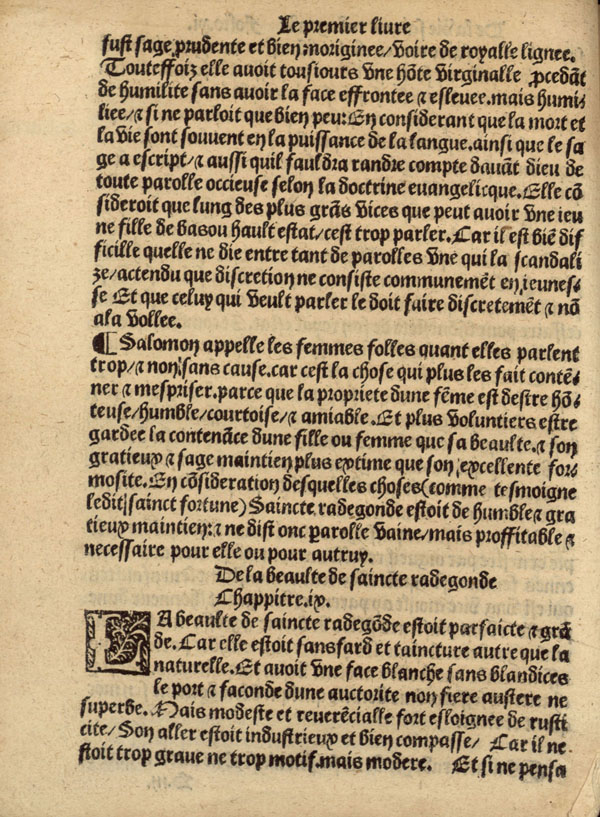 Le premier liure
fust sage prudente et bien moriginee/voire de royalle lignee.
Touteffoiz elle auoit tousiours vne hōte virginalle ꝓcedāt
de humilite sans auoir la face effrontee ⁊ esleuee. mais humi⸗
liee/⁊ si ne parloit que bien peu: En considerant que la mort et
la vie sont souuent en la puissance de la langue. ainsi que le sa
ge a escript/⁊ aussi quil fauldra randre compte dauāt dieu de
toute parolle occieuse selon la doctrine euangelicque. Elle cō
sideroit que lung des plus grās vices que peut auoir vne ieu
ne fille de bas ou hault estat/cest trop parler. Car il est biē dif
ficille quelle ne die entre tant de parolles vne qui la scandali
ze/actendu que discretion ne consiste communemēt en ieunes⸗
se Et que celuy qui veult parler le doit faire discretemēt ⁊ nō
a la vollee.
¶ Salomon appelle les femmes folles quant elles parlent
trop/⁊ non sans cause. car cest la chose qui plus les fait contē⸗
ner ⁊ mespriser. parce que la propriete dune fēme est destre hō⸗
teuse/humble/courtoise/⁊ amiable. Et plus voluntiers estre
gardee la contenāce dune fille ou femme que sa beaulte. ⁊ son
gratieux ⁊ sage maintien plus extime que son excellente for⸗
mosite. En cōsideration desquelles choses (comme tesmoigne
ledit sainct fortune) Saincte radegonde estoit de humble ⁊ gra
tieux maintien: ⁊ ne dist onc parolle vaine/mais proffitable ⁊
necessaire pour elle ou pour autruy.
De la beaulte de saincte radegonde
Chappitre. ix.
LA beaulte de saincte radegōde estoit parfaicte ⁊ grā
de. Car elle estoit sans fard et taincture autre que la
naturelle. Et auoit vne face blanche sans blandices
le port ⁊ faconde dune auctorite non fiere austere ne
superbe. Mais modeste et reuerēcialle fort esloignee de rusti
cite/Son aller estoit industrieux et bien compasse/ Car il ne
stoit trop graue ne trop motif. mais modere. Et si ne pensa